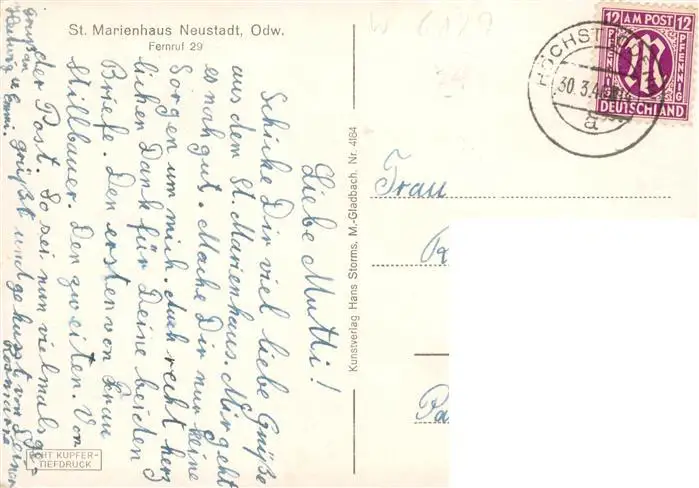 St. Marienhaus Neustadt, Odw.
Fernruf 29
Liebe Mutti!
Schicke Dir viel liebe Grüße
aus dem St. Marienhaus. Mir geht
es noch gut. Mache Dir nur keine
Sorgen um mich. Auch recht herz
lichen Dank für Deine beiden
Briefe. Den ersten von Frau
Stillbauer. Den zweiten. Von
der Post. So sei nun vielmals ge-
grüßt und geküsst von Deiner
Rosmarie
Gruß an
Hedwig u. Emmi.
ECHT KUPFER-
TIEFDRUCK
Kunstverlag Hans Storms, M.-Gladbach. Nr. 4184
12 AM POST 12
PFENNIG
M
PFENNIG
DEUTSCHLAND
HÖCHST
30.3.4
a
Frau
Pa